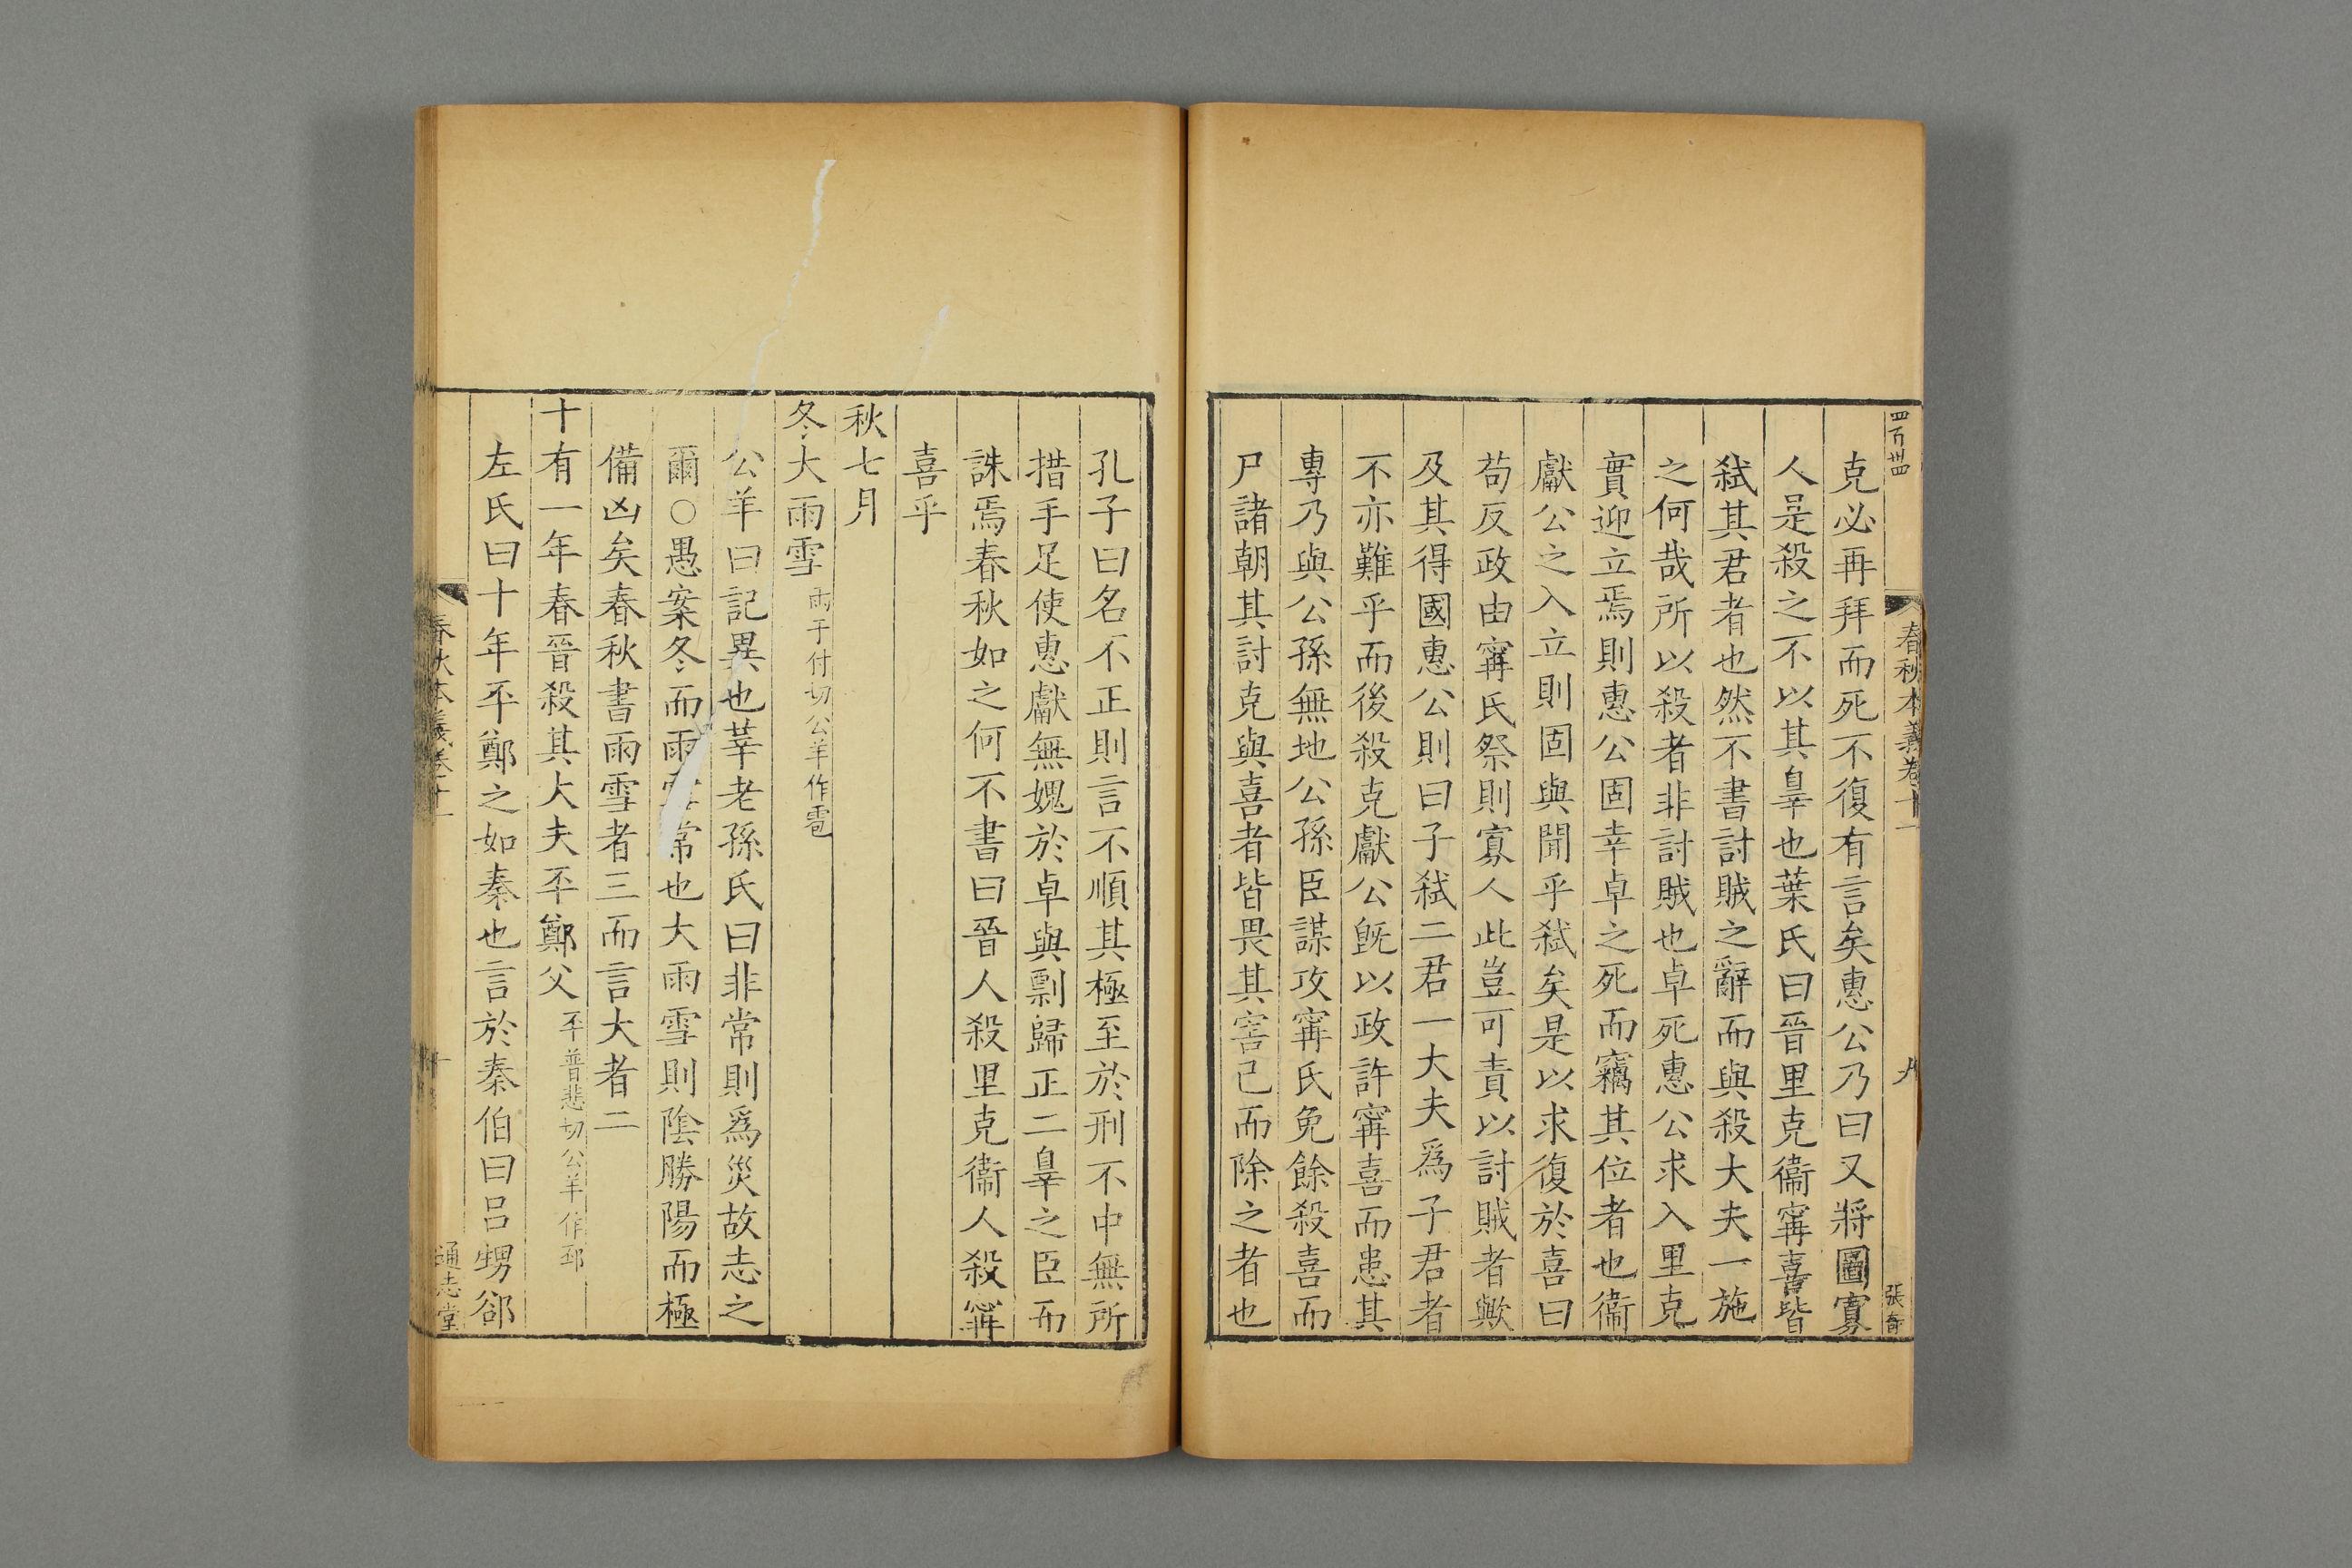 四百卌四
春秋本義卷十一
九
張奇
克必再拜而死不復有言矣惠公乃曰又將圖寡
人是殺之不以其辠也葉氏曰晉里克衞甯喜皆
弑其君者也然不書討賊之辭而與殺大夫一施
之何哉所以殺者非討賊也卓死惠公求入里克
實迎立焉則惠公固幸卓之死而竊其位者也衞
獻公之入立則固與聞乎弑矣是以求復於喜曰
苟反政由甯氏祭則寡人此豈可責以討賊者歟
及其得國惠公則曰子弑二君一大夫爲子君者
不亦難乎而後殺克獻公旣以政許甯喜而患其
專乃與公孫無地公孫臣謀攻甯氏免餘殺喜而
尸諸朝其討克與喜者皆畏其害己而除之者也
孔子曰名不正則言不順其極至於刑不中無所
措手足使惠獻無媿於卓與剽歸正二辠之臣而
誅焉春秋如之何不書曰晉人殺里克衞人殺甯
喜乎
秋七月
冬大雨雪雨于付切公羊作雹
公羊曰記異也莘老孫氏曰非常則爲災故志之
爾○愚案冬而雨雪常也大雨雪則陰勝陽而極
備凶矣春秋書雨雪者三而言大者二
十有一年春晉殺其大夫㔻鄭父㔻普悲切公羊作邳
左氏曰十年㔻鄭之如秦也言於秦伯曰呂甥郤
春秋本義卷十一
十
通志堂